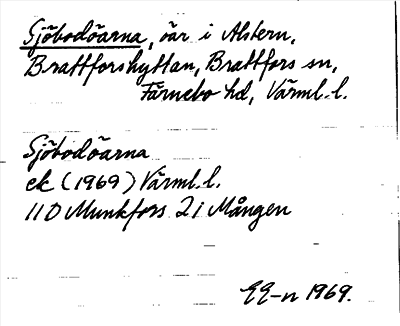 Sjöbodöarna, öar i Alstern,
Brattforshyttan, Brattfors sn,
Färnebo hd, Värml. l.
Sjöbodöarna
ek (1969) Värml. l.
11D Munkfors 2i Mången
EE-n 1969.